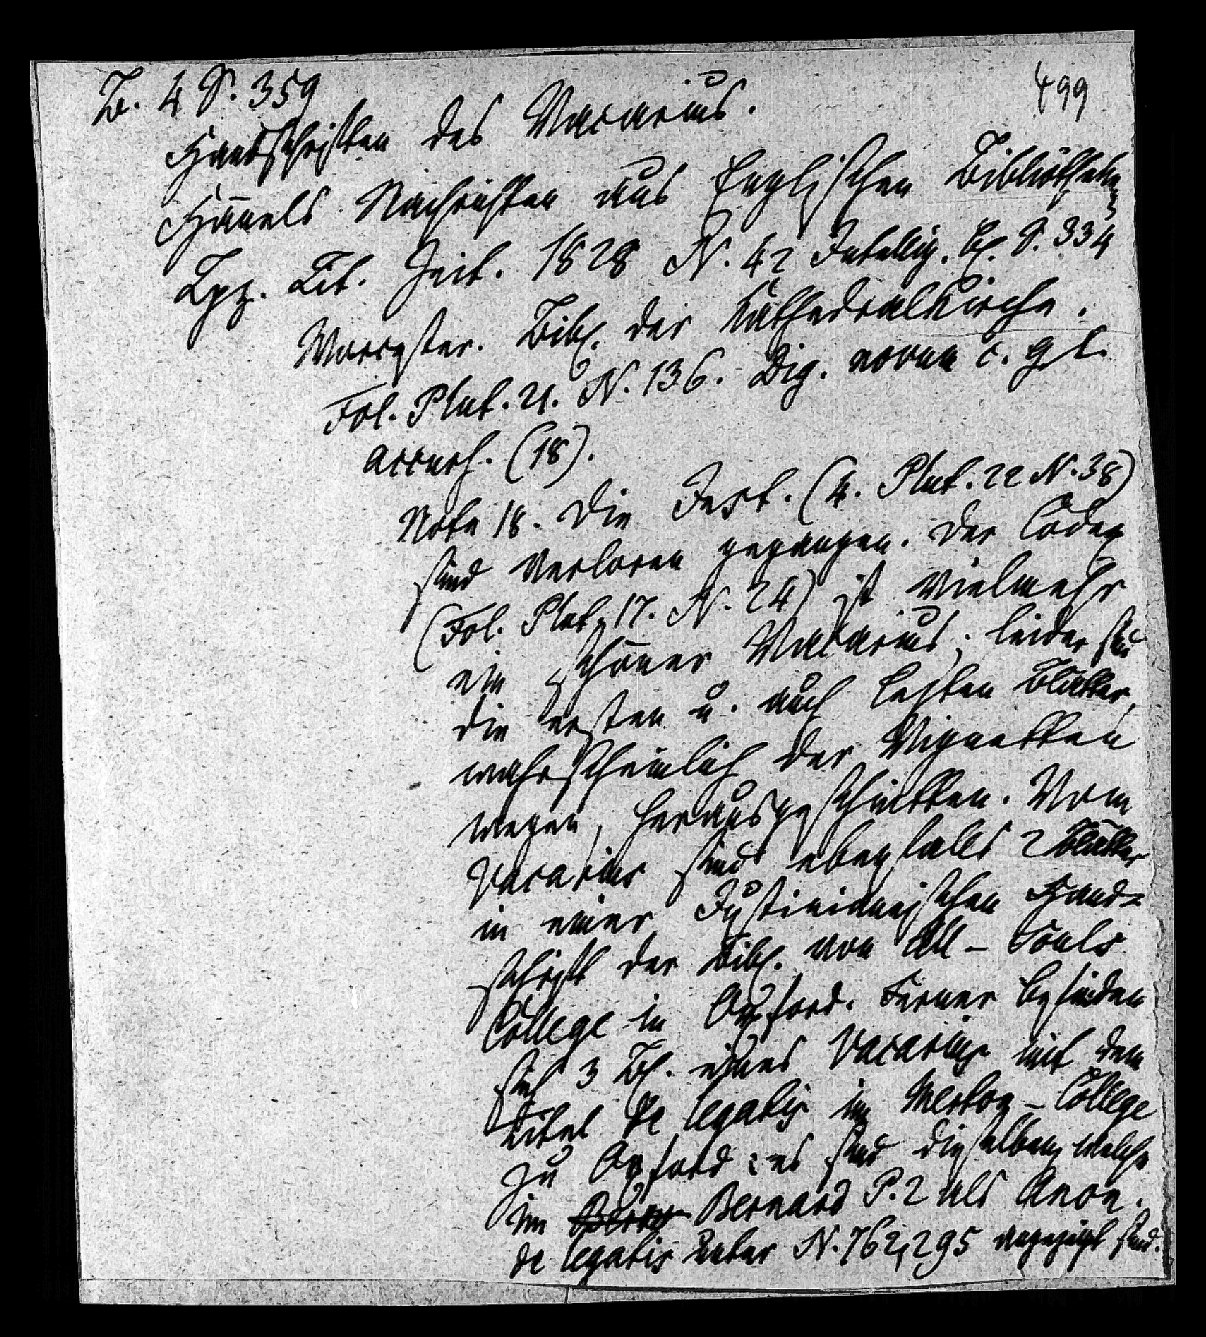 499
B. 4 S. 359
Handschriften des Vacarius.
Hänels Nachrichten aus Englischen Bibliotheken
Lpz. Lit. Zeit. 1828 N. 42 Intellig. Bl. S. 334
Worcester. Bibl. der Kathedralkirche.
Fol. Plut. 21. N. 136. Dig. novum c. gl.
Accurs. (18).
Note 18. Die Inst. (4. Plut. 22 N. 38)
sind verloren gegangen. Der Codex
(Fol. Plut. 17. N. 24) ist vielmehr
ein schöner Vacarius; leider sind
die ersten u. auch letzten Blätter,
wahrscheinlich der Vignetten
wegen, herausgeschnitten. Vom
Vacarius sind ebenfalls 2 Blätter
in einer Justinianischen Hand-
schrift der Bibl. von All-Souls
College in Oxford. Ferner befinden
sich 3 Bl. eines Vacarius mit dem
Titel de legatis im Merton-College
zu Oxford: es sind dieselben, welche
im Bernard P. 2 als Anon.
de legatis unter N. 762, 295 angezeigt sind.